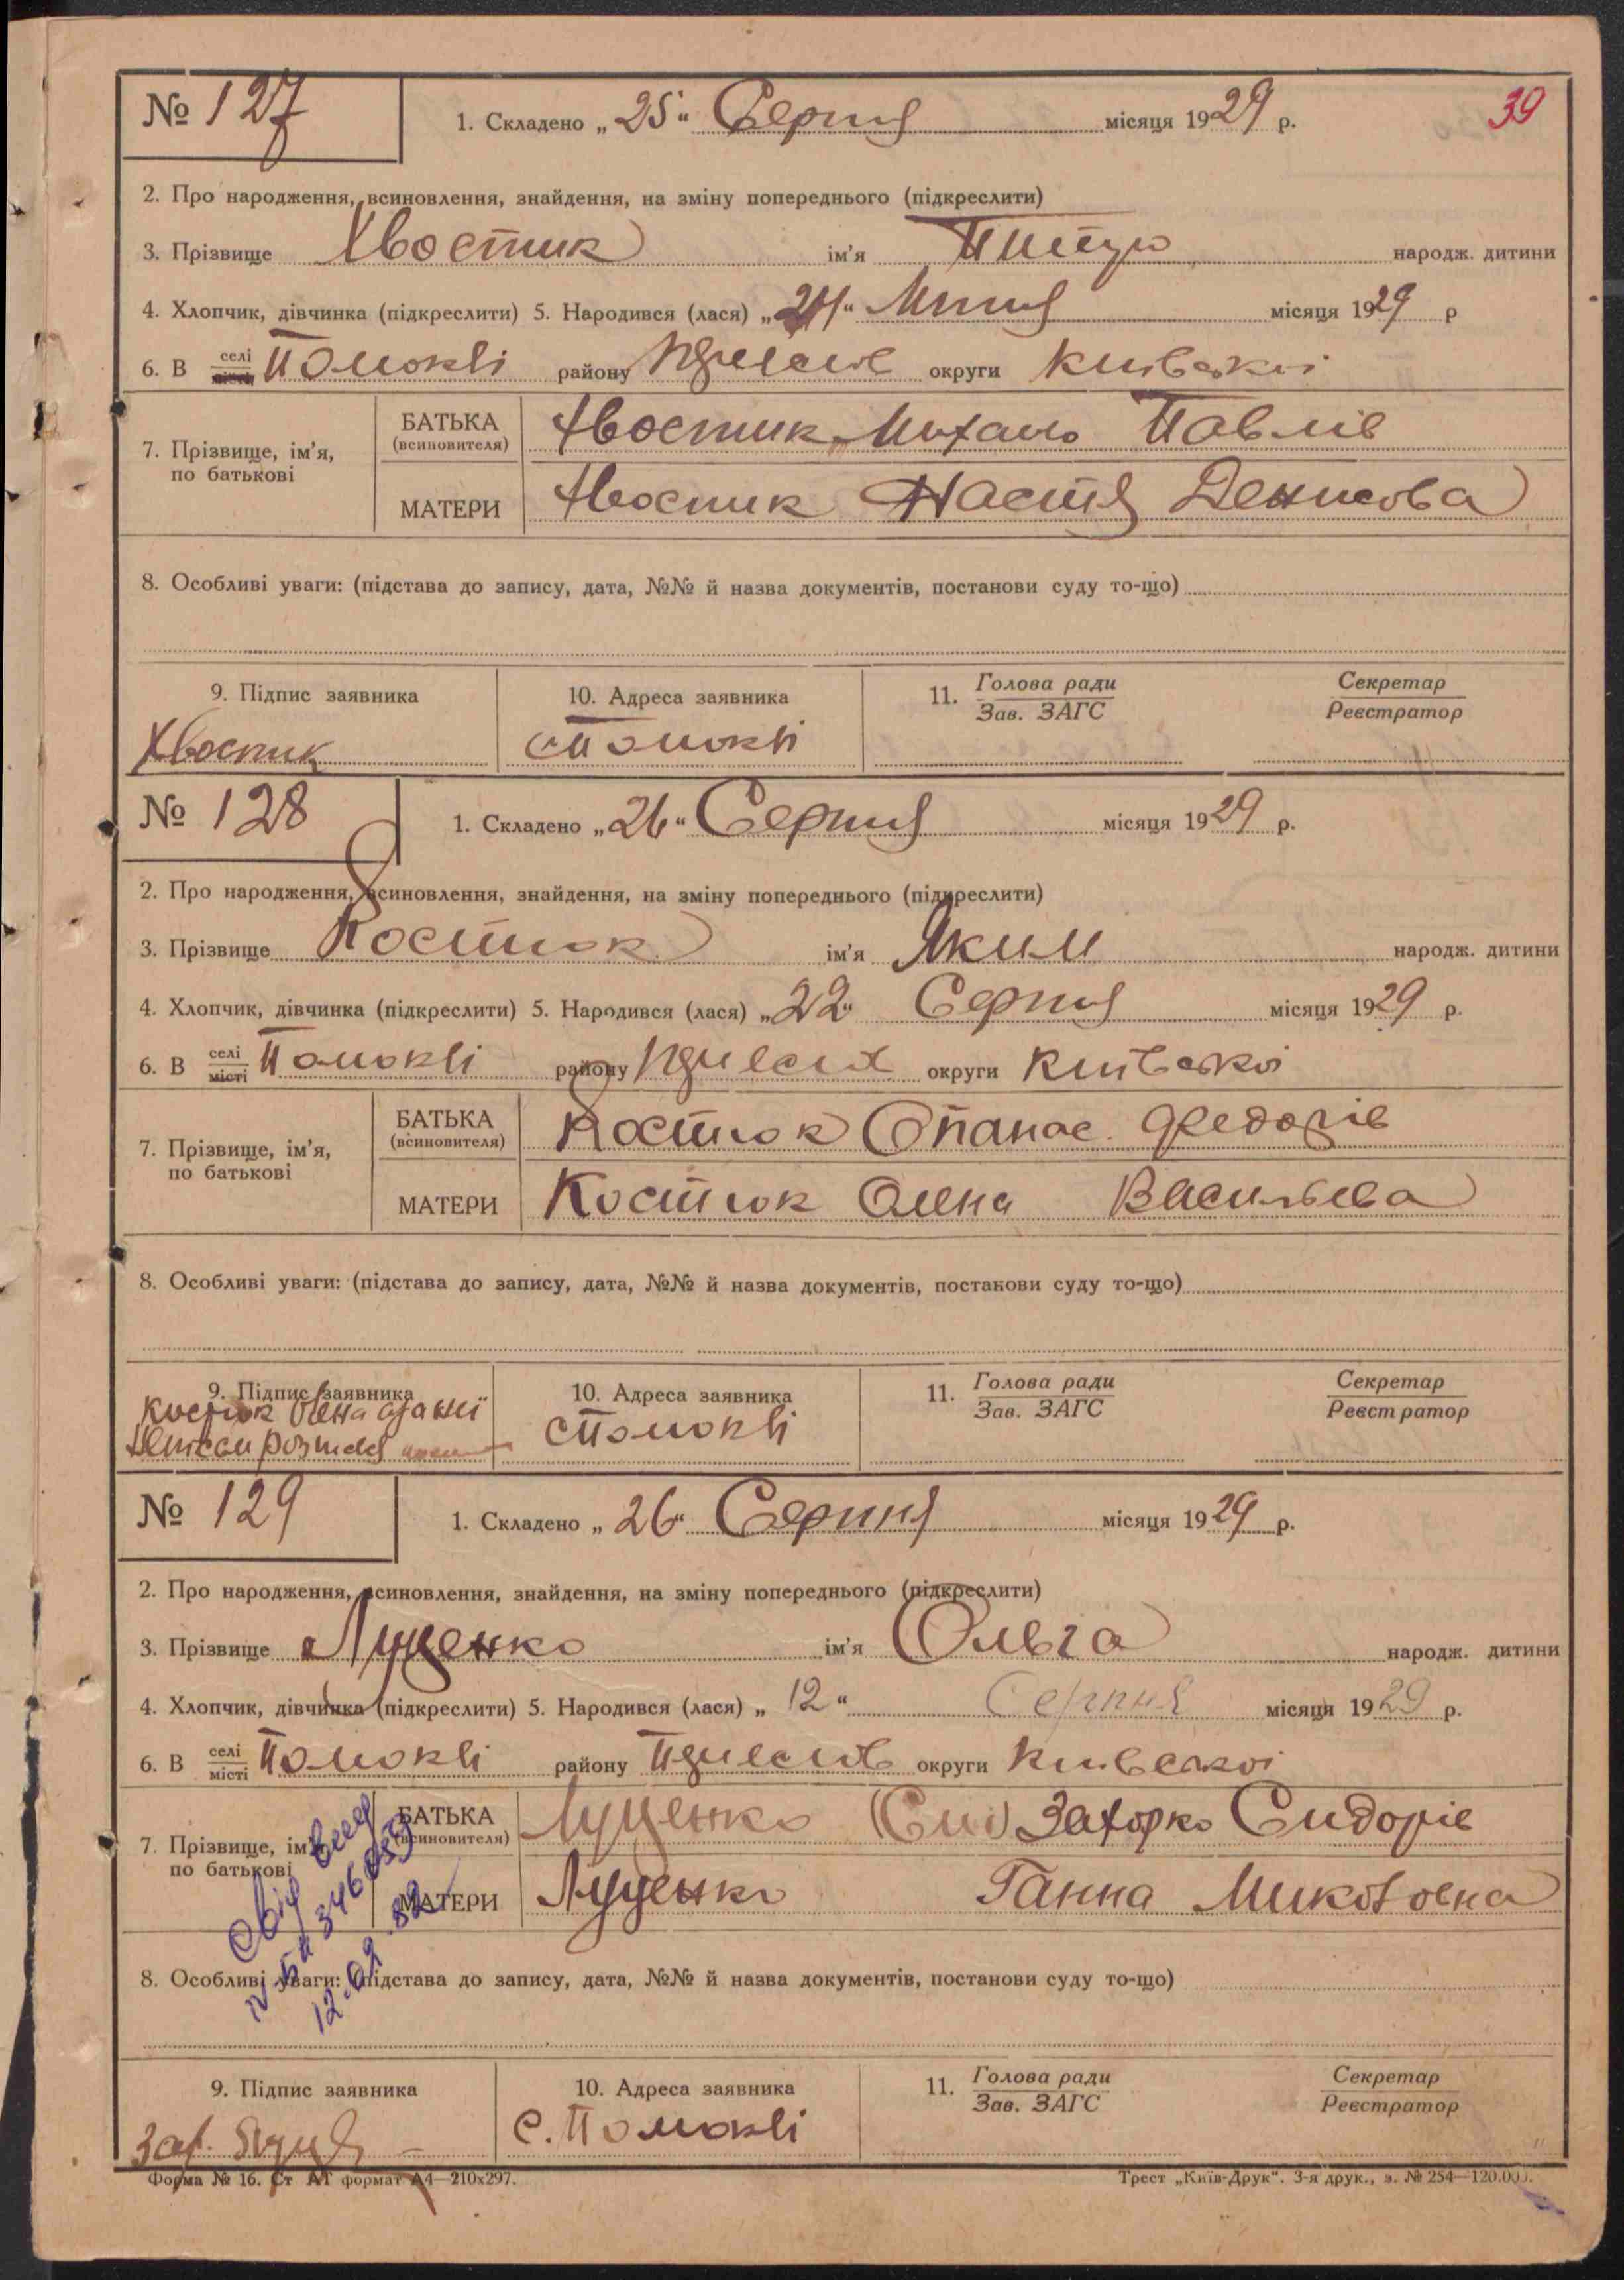 39
№ 127
1. Складено „25“ Серпня місяця 1929 р.
2. Про народження, всиновлення, знайдення, на зміну попереднього (підкреслити)
3. Прізвище Хвостик ім'я народж. дитини
4. Хлопчик, дівчинка (підкреслити) 5. Народився (лася) „24“ місяця 1929 р
6. В селі місті Помоклі району округи Київської
7. Прізвище, ім'я, по батькові
БАТЬКА (всиновителя) Хвостик Михайло Павлів
МАТЕРИ Хвостик Настя Денисова
8. Особливі уваги: (підстава до запису, дата, №№ й назва документів, постанови суду то-що)
9. Підпис заявника 10. Адреса заявника 11. Голова ради Зав. ЗАГС Секретар Реєстратор
Хвостик с Помоклі
№ 128
1. Складено „26“ Серпня місяця 1929 р.
2. Про народження, всиновлення, знайдення, на зміну попереднього (підкреслити)
3. Прізвище Костюк ім'я Яким народж. дитини
4. Хлопчик, дівчинка (підкреслити) 5. Народився (лася) „22“ Серпня місяця 1929 р.
6. В селі місті Помоклі району округи Київської
7. Прізвище, ім'я, по батькові
БАТЬКА (всиновителя) Костюк Опанас Федорів
МАТЕРИ Костюк Олена Васильева
8. Особливі уваги: (підстава до запису, дата, №№ й назва документів, постанови суду то-що)
9. Підпис заявника 10. Адреса заявника 11. Голова ради Зав. ЗАГС Секретар Реєстратор
Костюк Олена с Помоклі
№ 129
1. Складено „26“ Серпня місяця 1929 р.
2. Про народження, всиновлення, знайдення, на зміну попереднього (підкреслити)
3. Прізвище Луценко ім'я Ольга народж. дитини
4. Хлопчик, дівчинка (підкреслити) 5. Народився (лася) „12“ Серпня місяця 1929 р.
6. В селі місті Помоклі району округи Київської
7. Прізвище, ім'я, по батькові
БАТЬКА (всиновителя) Луценко (Сид) Захорко Сидорів
МАТЕРИ Луценко Ганна Миколовна
12.09.82
8. Особливі уваги: (підстава до запису, дата, №№ й назва документів, постанови суду то-що)
9. Підпис заявника 10. Адреса заявника 11. Голова ради Зав. ЗАГС Секретар Реєстратор
с. Помоклі
Форма № 16. Ст АТ формат А4—210х297. Трест „Київ-Друк“. 3-я друк., з. № 254—120.000.